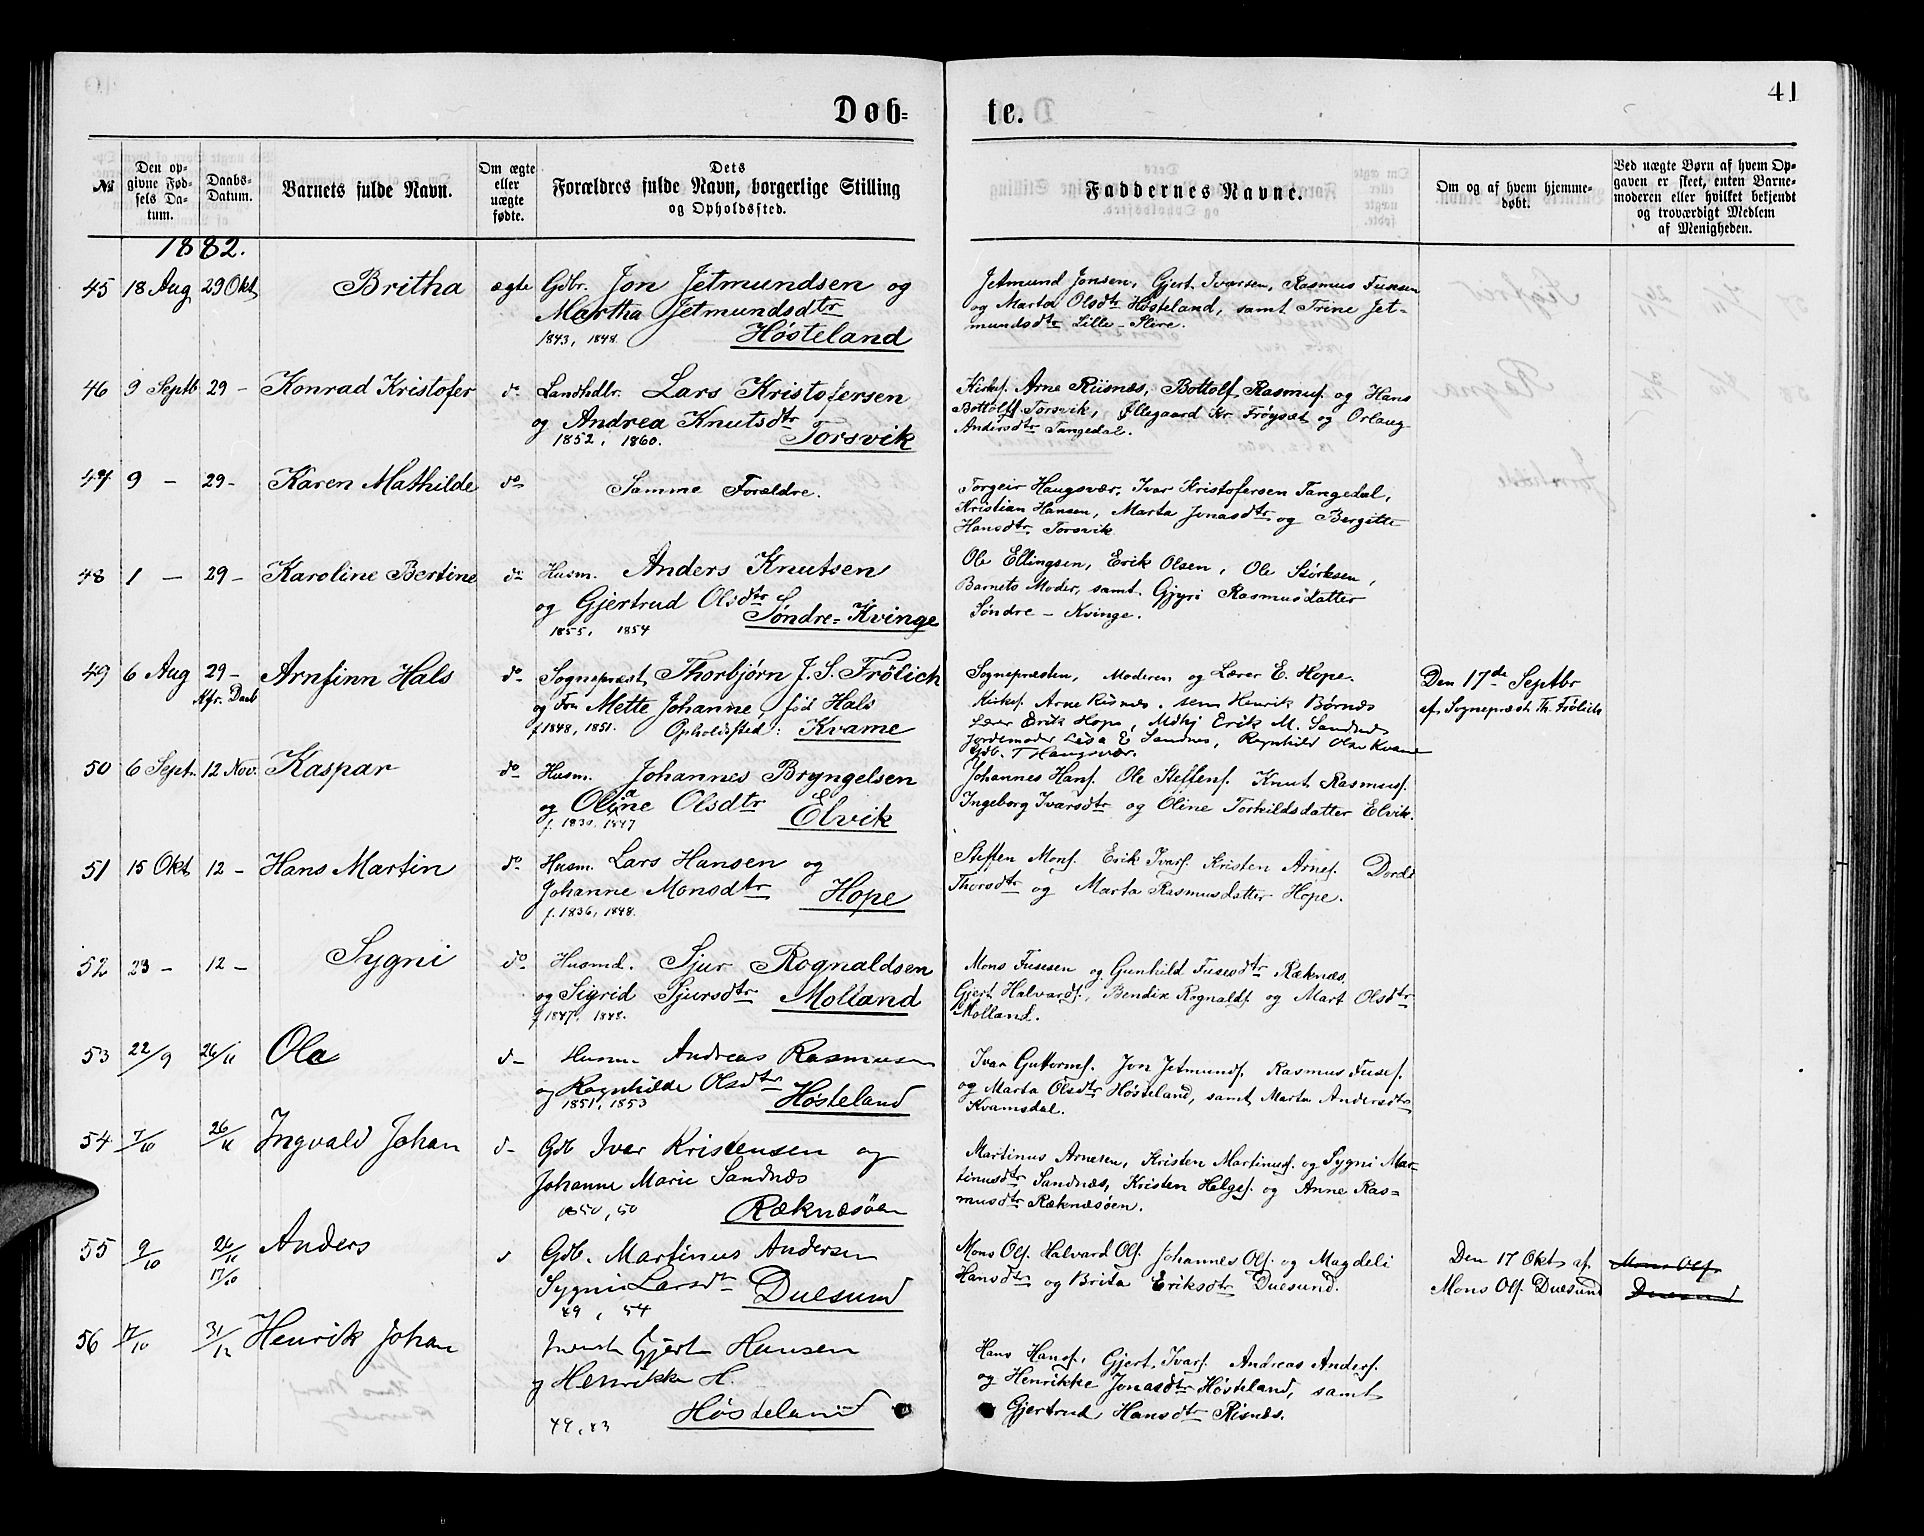 Døb=
te.
41
№
Den opgivne Fødsels Datum.
Daabs-Datum.
Barnets fulde Navn.
Om ægte eller uægte fødte.
Dets
Forældres fulde Navn, borgerlige Stilling
og Opholdssted.
Faddernes Navne.
Om og af hvem hjemmedøbt.
Ved uægte Børn af hvem Opgaven er skeet, enten Barnemoderen eller hvilket bekjendt og troværdigt Medlem af Menigheden.
1882.
45 18 Aug 29 Okt Britha ægte Gdbr. Jon Jetmundsen og
Martha Jetmundsdtr
1843, 1848. Høsteland
Jetmund Jonsen, Gjert Ivarsen, Rasmus Fusesen
og Marta Olsdtr Høsteland, samt Trine Jet-
mundsdtr Lille-
46 9 Septb 29 - Konrad Kristofer do Landhdlr. Lars Kristofersen
og Andrea Knutsdtr
1852, 1860. Torsvik
Kirkes. Arne Riisnæs, Bottolf Rasmus. og Hans
Bottolfs. Torsvik, Ellegaard Kr. Frøyset og Orlaug
Andersdtr Tangedal.
47 9 - 29 - Karen Mathilde do Samme Forældre.
Torgeir Haugsvær, Ivar Kristofersen Tangedal,
Kristian Hansen, Marta Jonasdtr og Bergitte
Hansdtr. Torsvik
48 1 - 29 - Karoline Bertine do Husm. Anders Knutsen
og Gjertrud Olsdtr
1855, 1854 Søndre-Kvinge
Ole Ellingsen, Erik Olsen, Ole Størksen,
Barnets Moder, samt Gjyri Rasmusdatter
Søndre - Kvinge.
49 6 Aug 29 - Arnfinn Hals do Sognepræst Thorbjørn J. S. Frölich
Kfr. Daab
og Fru Mette Johanne, fød Hals
f 1848, 1851. Opholdssted: Kvame
Sognepræsten, Moderen og Lærer E. Hope.
Kirkes. Arne Risnæs, sem Henrik Børnæs
Lærer Erik Hope, Mdhj Erik M. Sandnæs
Jordemoder Lisa E Sandnes, Ragnhild Olsd Kvame
Gdb. T Haugsvær.
Den 17de Septbr
af Sognepræst Th. Frölich
50 6 Sept. 12 Nov. Kaspar do Husm. Johannes Bryngelsen
og Oline Olsdtr
f. 1830. 1847 Elvik
Johannes Hans. Ole Steffens. Knut Rasmus.
Ingeborg Ivarsdtr og Oline Torkildsdatter Elvik.
51 15 Okt 12 - Hans Martin do Husm. Lars Hansen og
Johanne Monsdtr
f. 1836, 1848. Hope
Steffen Mons. Erik Ivars. Kristen Arnes. Dorde
Thorsdtr og Marta Rasmusdatter Hope.
52 23 - 12 - Sygni do Husmd. Sjur Rognaldsen
og Sigrid Sjursdtr Molland
f 1847, 1848.
Mons Fusesen og Gunhild Fusesdtr Ræknæs,
Gjert Halvards., Bendik Rognalds og Mart Olsdtr
Molland.
53 22/9 26/11 Ola d- Husm. Andreas Rasmusen
og Ragnhilde Olsdtr
1851, 1853 Høsteland
Ivar Guttorms. Jon Jetmunds. Rasmus Fuses.
og Marta Olsdtr Høsteland, samt Marta Andersdtr
Kvamsdal.
54 7/10 26/11 Ingvald Johan d- Gdb Ivar Kristensen og
Johanne Marie Sandnæs
1850, 50 Ræknæsøen
Martinus Arnesen, Kristen Martinus. og Sygni Mar-
tinusdtr Sandnæs, Kristen Helges. og Anne Ras-
musdtr Ræknæsøen.
55 9/10 26/11 Anders d Gdb. Martinus Andersen
17/10
Sygni Larsdtr Duesund
49, 54
Mons Ols. Halvard Ols. Johannes Ols. og Magdeli
Hansdtr og Brita Eriksdtr Duesund.
Den 17 Okt af
Mons Ols. Duesund
Mons Ols.
Duesund
56 17/10 31/12 Henrik Johan Gjert Hansen
og Henrikke H.
49, 53 Høsteland
Hans Hans., Gjert Ivars. Andreas Anders.
og Henrikke Jonasdtr Høsteland, samt
Gjertrud Hansdtr Risnæs.